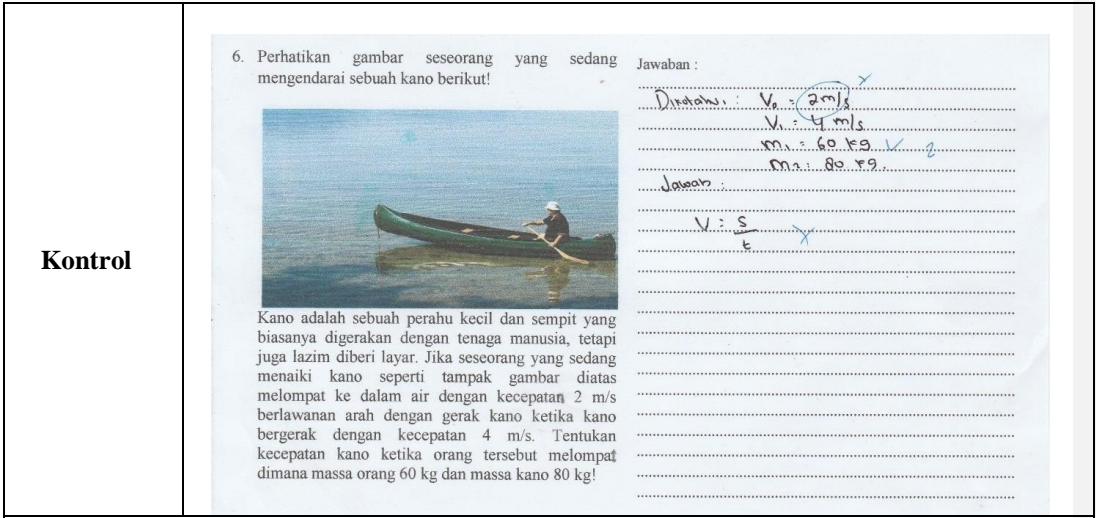 Kontrol
6. Perhatikan gambar seseorang yang sedang
mengendarai sebuah kano berikut!
Kano adalah sebuah perahu kecil dan sempit yang
biasanya digerakan dengan tenaga manusia, tetapi
juga lazim diberi layar. Jika seseorang yang sedang
menaiki kano seperti tampak gambar diatas
melompat ke dalam air dengan kecepatan 2 m/s
berlawanan arah dengan gerak kano ketika kano
bergerak dengan kecepatan 4 m/s. Tentukan
kecepatan kano ketika orang tersebut melompat
dimana massa orang 60 kg dan massa kano 80 kg!
Jawaban :
V₀ : 2 m/s
V₁ : 4 m/s
m₁ : 60 kg 2
m₂ : 80 kg.
Jawab :
V : s
t